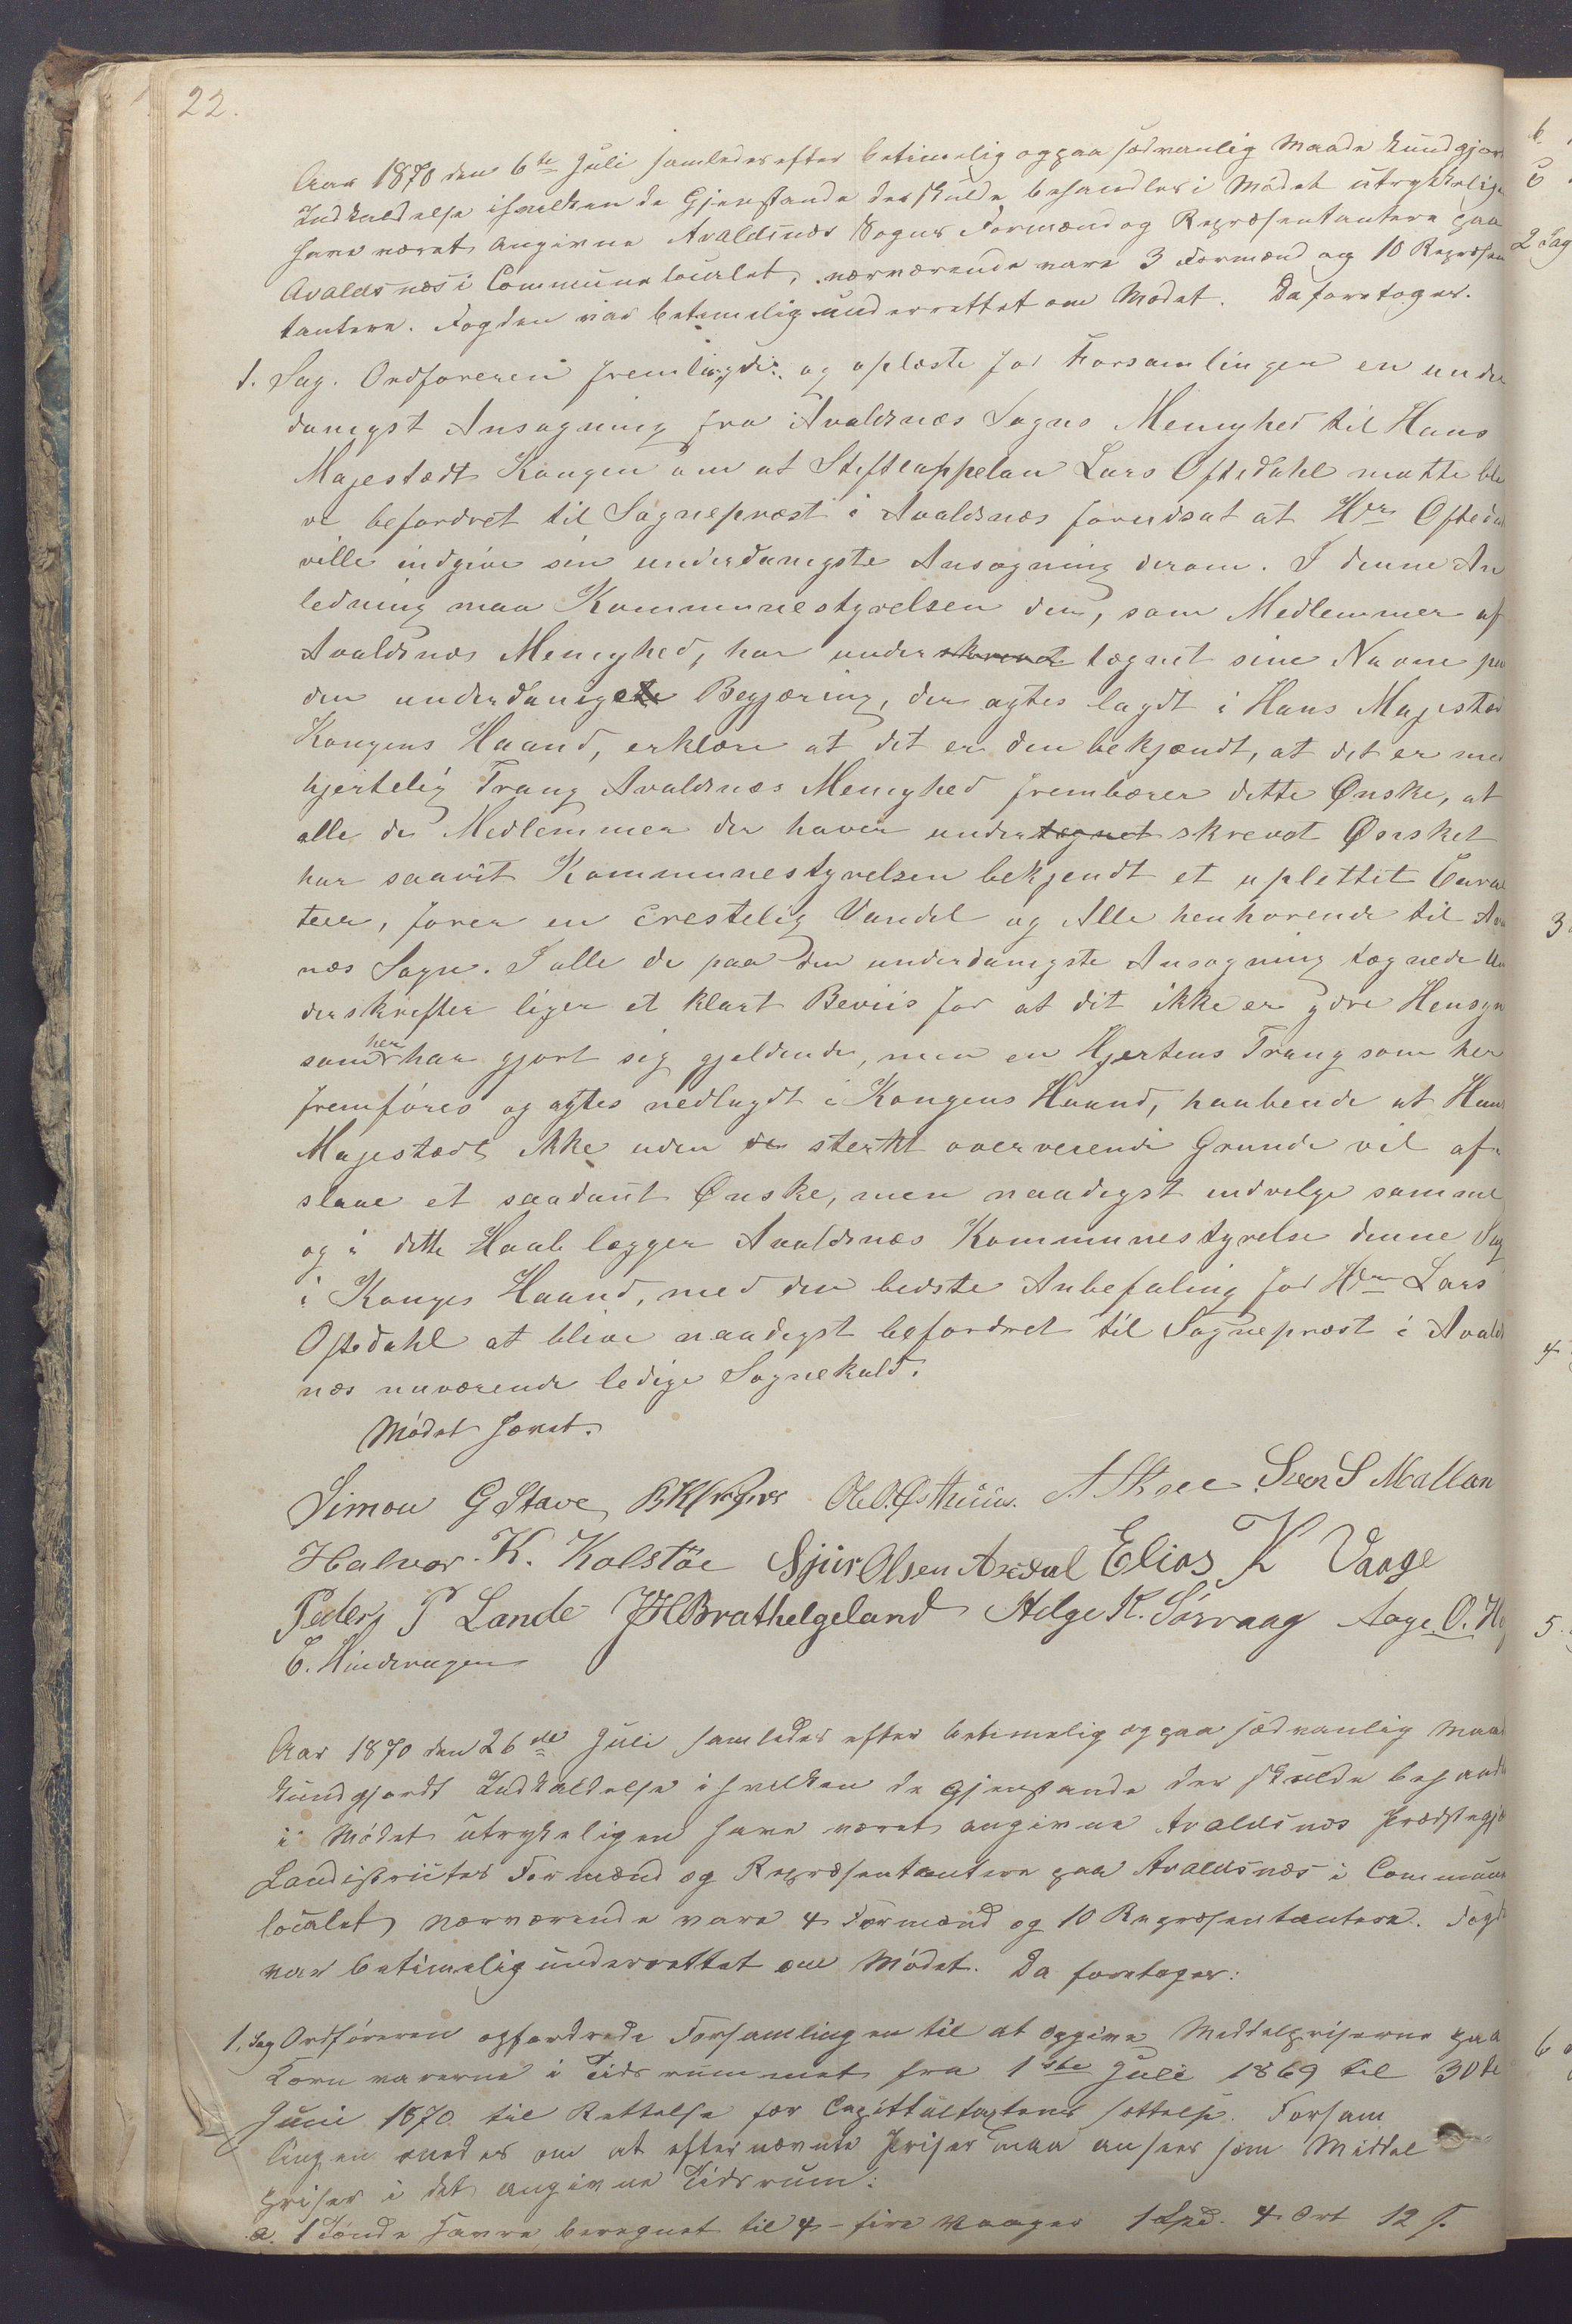 22.
Aar 1870 den 6te Juli samledes efter betimelig og paa sædvanlig Maade kundgjor
Indkaldelse i hvilken de Gjenstande der skulde behandles i Mødet utrykkelige
have været angivne Avaldsnæs Sogns Formænd og Repræsentantere paa
Avaldsnæs i Communelocalet, nærværende vare 3 Formænd og 10 Repræsen
tantere. Fogden var betimelig underrettet om Mødet. Da foretoges.
1. Sag. Ordføreren fremlagde og oplæste for Forsamlingen en under
danigst Ansøgning fra Avaldsnæs Sogns Menighed til Hans
Majestædt Kongen om at Stiftcappelan Lars Oftedahl matte bli
ve befordret til Sognepræst i Avaldsnæs forudsat at Hr Ofteda
ville indgive sin underdanigste Ansøgning derom. I denne An
ledning maa Kommunestyrelsen der, som Medlemmer af
Avaldsnæs Menighed, har underskrevet tegnet sine Navne paa
den underdanigste Begjæring, der agtes lagdt i Hans Majestæd
Kongens Haand, erklære at det er den bekjændt, at det er med
hjertelig Trang Avaldsnæs Menighed frembærer dette Ønske, at
alle de Medlemmer der haver undertegnet skrevet Ønsket
har saavit Kommunestyrelsen bekjendt et uplettit Carac
teer, fører en Crestelig Vandel og Alle henhørende til Ava
næs Sogn. I alle de paa den underdanigste Ansøgning tegnede Un
derskrifter liger et klart Beviis for at dit ikke er ydre Hensyn
som her har gjort sig gjeldende, men en Hjertens Trang som her
fremføres og agtes nedlagdt i Kongens Haand, haabende at Hans
Majestædt ikke uden de sterkt overveiende Grunde vil af
slaae et saadant Ønske, men naadigst indvilge samme
og i dette Haab lægger Avaldsnæs Kommunestyrelse denne Sag
i Konges Haand, med den bedste Anbefaling for Hr Lars
Oftedahl at blive naadigst befordret til Sognepræst i Avalds
næs nuværende ledige Sognekald.
Mødet hævet.
Simon G Stave Ole O. Østhuus. A Skree Sven S Mallan
Halvor K. Kolstøe Sjur Olsen Axdal Elias K Vaage
Peder P Lande JH Brathelgeland Helge K. Sørvaag Aage O. H
E. Hindervagen
Aar 1870 den 26de Juli samledes efter betimelig og paa sædvanlig Maad
kundgjordt Indkaldelse i hvilken de Gjenstande der skulde behandl
i Mødet utrykeligen have været angivne Avaldsnæs Præstegje
Landistrictes Formænd og Repræsentantere paa Avaldsnæs i Commune
localet, nærværende vare 4 Formænd og 10 Repræsentantere. Fogd
var betimelig underrettet om Mødet. Da foretoges:
1. Sag Ordføreren opfordrede Forsamlingen til at opgive Middelpriserne paa
Kornvarerne i Tidsrummet fra 1ste Juli 1869 til 30te
Juni 1870 til Rettelse for Capittultaxtens sættelse. Forsam
lingen enedes om at efternævnte Priser maa ansees som Middel
priser i det angivne Tidsrum:
a. 1 Tønde Havre beregnet til 4 - fire Vaager 1 Spd. 4 Ort 12 s.
6
2 Sag
3
4
5.
6